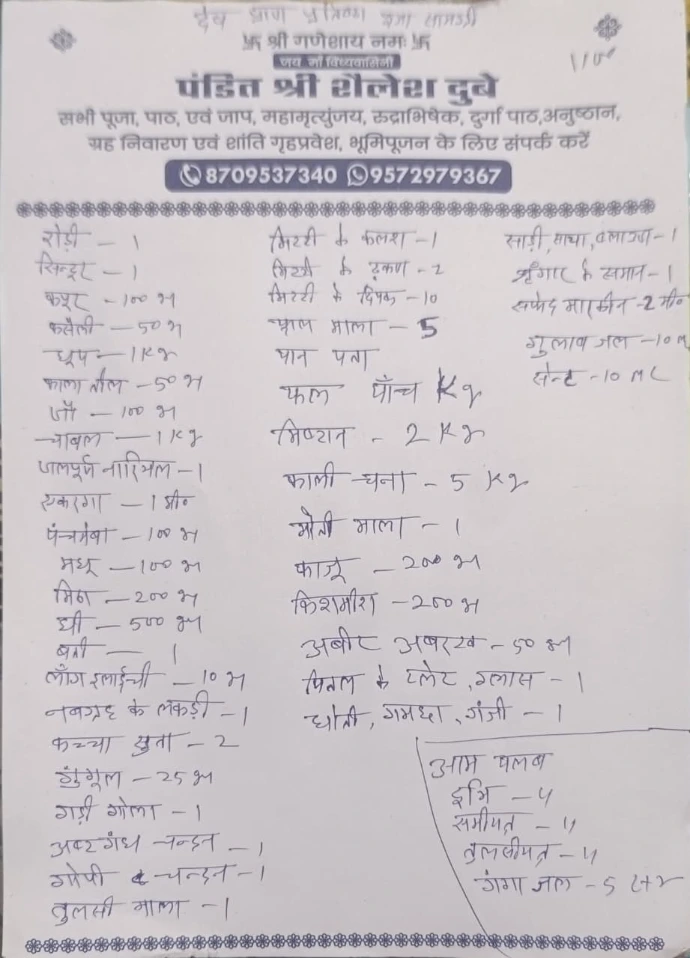 देव प्राण प्रतिष्ठा पूजा सामग्री
卐 श्री गणेशाय नमः 卐
जय माँ विंध्यवासिनी
पंडित श्री शैलेश दुबे
सभी पूजा, पाठ, एवं जाप, महामृत्युंजय, रुद्राभिषेक, दुर्गा पाठ,अनुष्ठान,
ग्रह निवारण एवं शांति गृहप्रवेश, भूमिपूजन के लिए संपर्क करें
8709537340 9572979367
रोड़ी – 1
सिन्दूर – 1
कपूर – 100 ग्रा
कसैली – 50 ग्रा
धूप – 1 Kg
काला तील – 50 ग्रा
जौ – 100 ग्रा
चावल – 1 Kg
जलपूर्ण नारियल – 1
एकरंगा – 1 मी॰
पंचमेवा – 100 ग्रा
मधू – 100 ग्रा
मिठा – 200 ग्रा
घी – 500 ग्रा
बती – 1
लौंग इलाईची – 10 ग्रा
नवग्रह के लकड़ी – 1
कच्चा सुता – 2
गुंगूल – 25 ग्रा
गड़ी गोला – 1
अष्टगंध चन्दन – 1
गोपी चन्दन – 1
तुलसी माला – 1
मिटटी के कलश – 1
मिटटी के ढकण – 2
मिटटी के दिपक – 10
माला – 5
पान पता
फल पाँच Kg
मिष्ठान – 2 Kg
काली चना – 5 Kg
मोती माला – 1
काजू – 200 ग्रा
किशमीश – 200 ग्रा
अबीर अबरख – 50 ग्रा
पितल के प्लेट, ग्लास – 1
धोती, गमछा, गंजी – 1
साड़ी, साया, ब्लाउज – 1
श्रृंगार के समान – 1
सफेद मारकीन – 2 मी॰
गुलाब जल – 10 M
सेन्ट – 10 ML
आम पलब
दुभि – 4
समीपत्र – 4
तुलसीपत्र – 4
गंगा जल – 5 Ltr